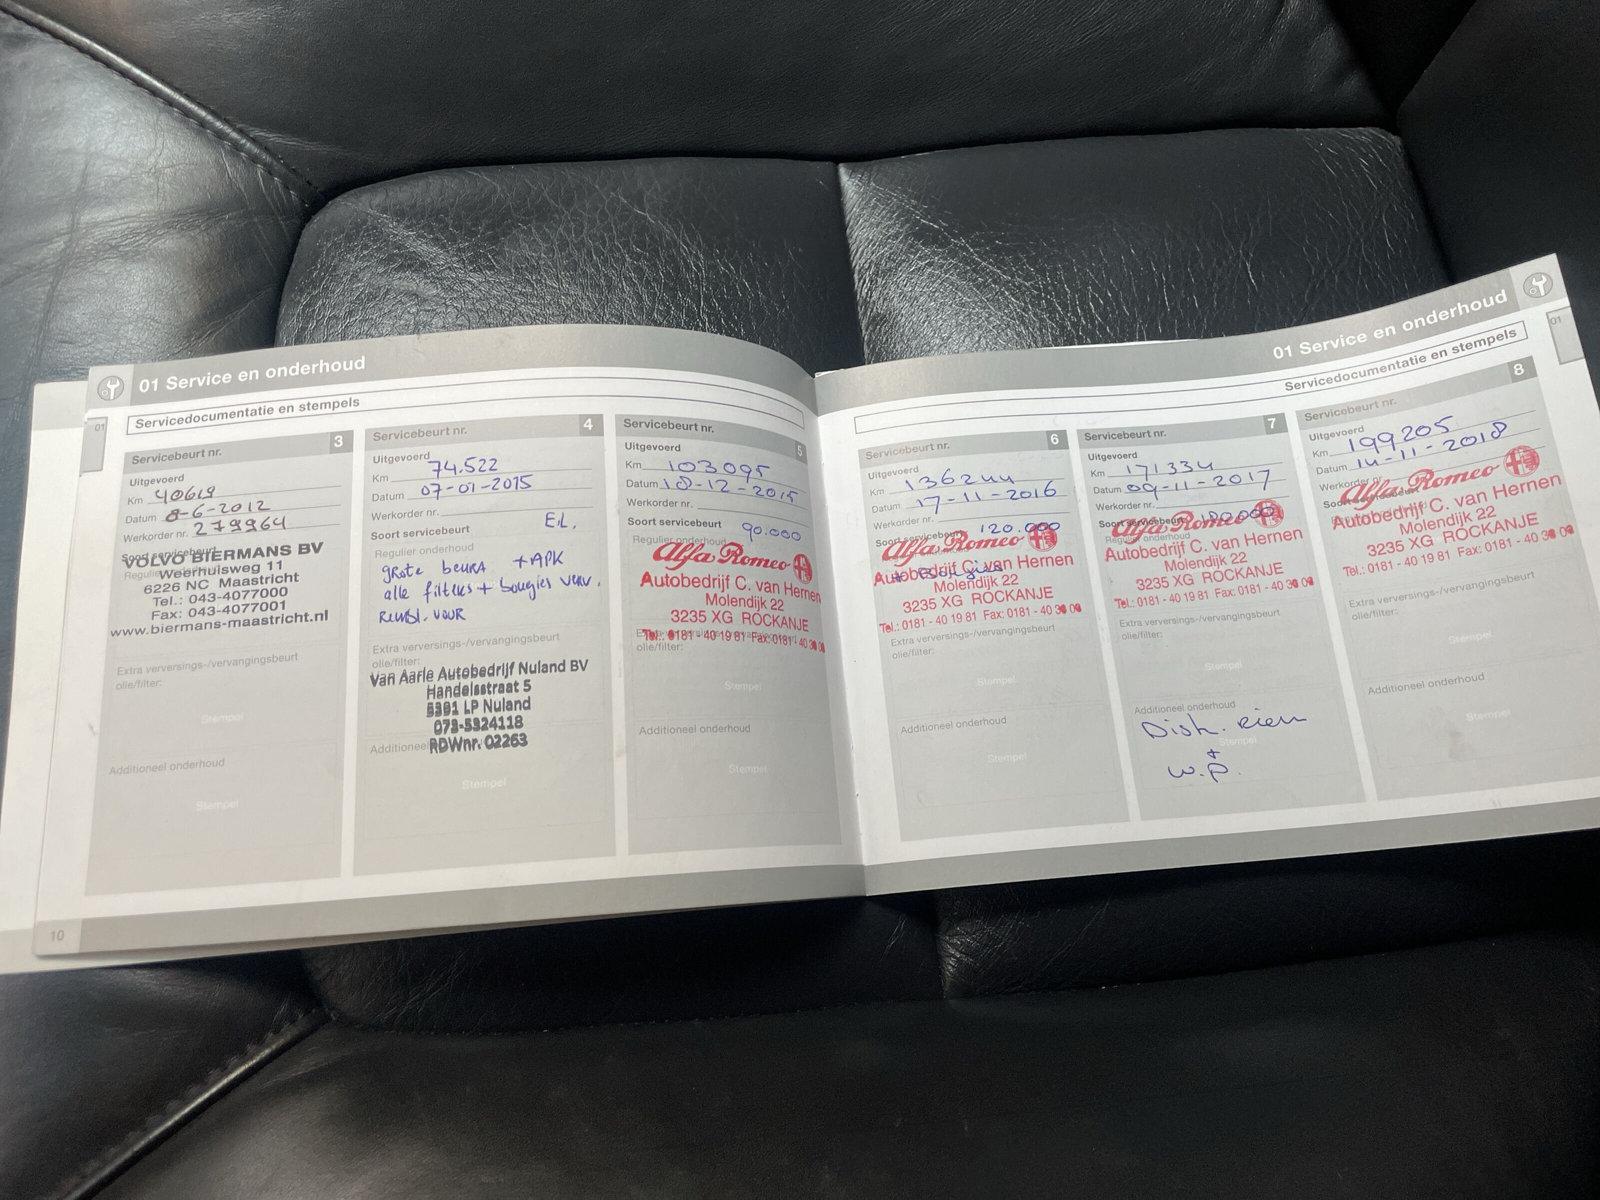 01 Service en onderhoud
Servicedocumentatie en stempels
01
Servicebeurt nr. 3
Uitgevoerd
Km 40619
Datum 8-6-2012
Werkorder nr. 279964
Soort servicebeurt
VOLVO BIERMANS BV
Weerhuisweg 11
6226 NC Maastricht
Tel.: 043-4077000
Fax: 043-4077001
www.biermans-maastricht.nl
Extra verversings-/vervangingsbeurt
olie/filter:
Stempel
Additioneel onderhoud
Stempel
10
Servicebeurt nr. 4
Uitgevoerd
Km 74.522
Datum 07-01-2015
Werkorder nr.
E.L.
Soort servicebeurt
Regulier onderhoud
grote beurt +APK
alle filters + bougies verv.
Rembl. voor
Extra verversings-/vervangingsbeurt
olie/filter:
Van Aarle Autobedrijf Nuland BV
Handelsstraat 5
5391 LP Nuland
073-5324118
RDWnr. 02263
Additioneel
Stempel
Servicebeurt nr. 5
Uitgevoerd
Km 103095
Datum 10-12-2015
Werkorder nr.
Soort servicebeurt 90.000
Regulier onderhoud
Alfa Romeo
Autobedrijf C. van Hernen
Molendijk 22
3235 XG ROCKANJE
Tel.: 0181 - 40 19 81 Fax: 0181 - 40
olie/filter:
Stempel
Additioneel onderhoud
Stempel
01 Service en onderhoud
Servicedocumentatie en stempels
01
Servicebeurt nr. 6
Uitgevoerd
Km 136244
Datum 17-11-2016
Werkorder nr.
120.000
Soort
Alfa Romeo
Autobedrijf C. van Hernen
+ Bougies
Molendijk 22
3235 XG ROCKANJE
Tel.: 0181 - 40 19 81 Fax: 0181 - 40
Extra verversings-/vervangingsbeurt
olie/filter:
Stempel
Additioneel onderhoud
Stempel
Servicebeurt nr. 7
Uitgevoerd
Km 171334
Datum 09-11-2017
Werkorder nr.
Soort servicebeurt
Alfa Romeo
Autobedrijf C. van Hernen
Molendijk 22
3235 XG ROCKANJE
Tel.: 0181 - 40 19 81 Fax: 0181 - 40
Extra verversings-/vervangingsbeurt
olie/filter:
Stempel
Additioneel onderhoud
Distr. riem
Stempel
+
w.p.
Servicebeurt nr. 8
Uitgevoerd
Km 199205
Datum 14-11-2018
Werkorder nr.
Alfa Romeo
Autobedrijf C. van Hernen
Molendijk 22
3235 XG ROCKANJE
Tel.: 0181 - 40 19 81 Fax: 0181 - 40
Extra verversings-/vervangingsbeurt
olie/filter:
Stempel
Additioneel onderhoud
Stempel